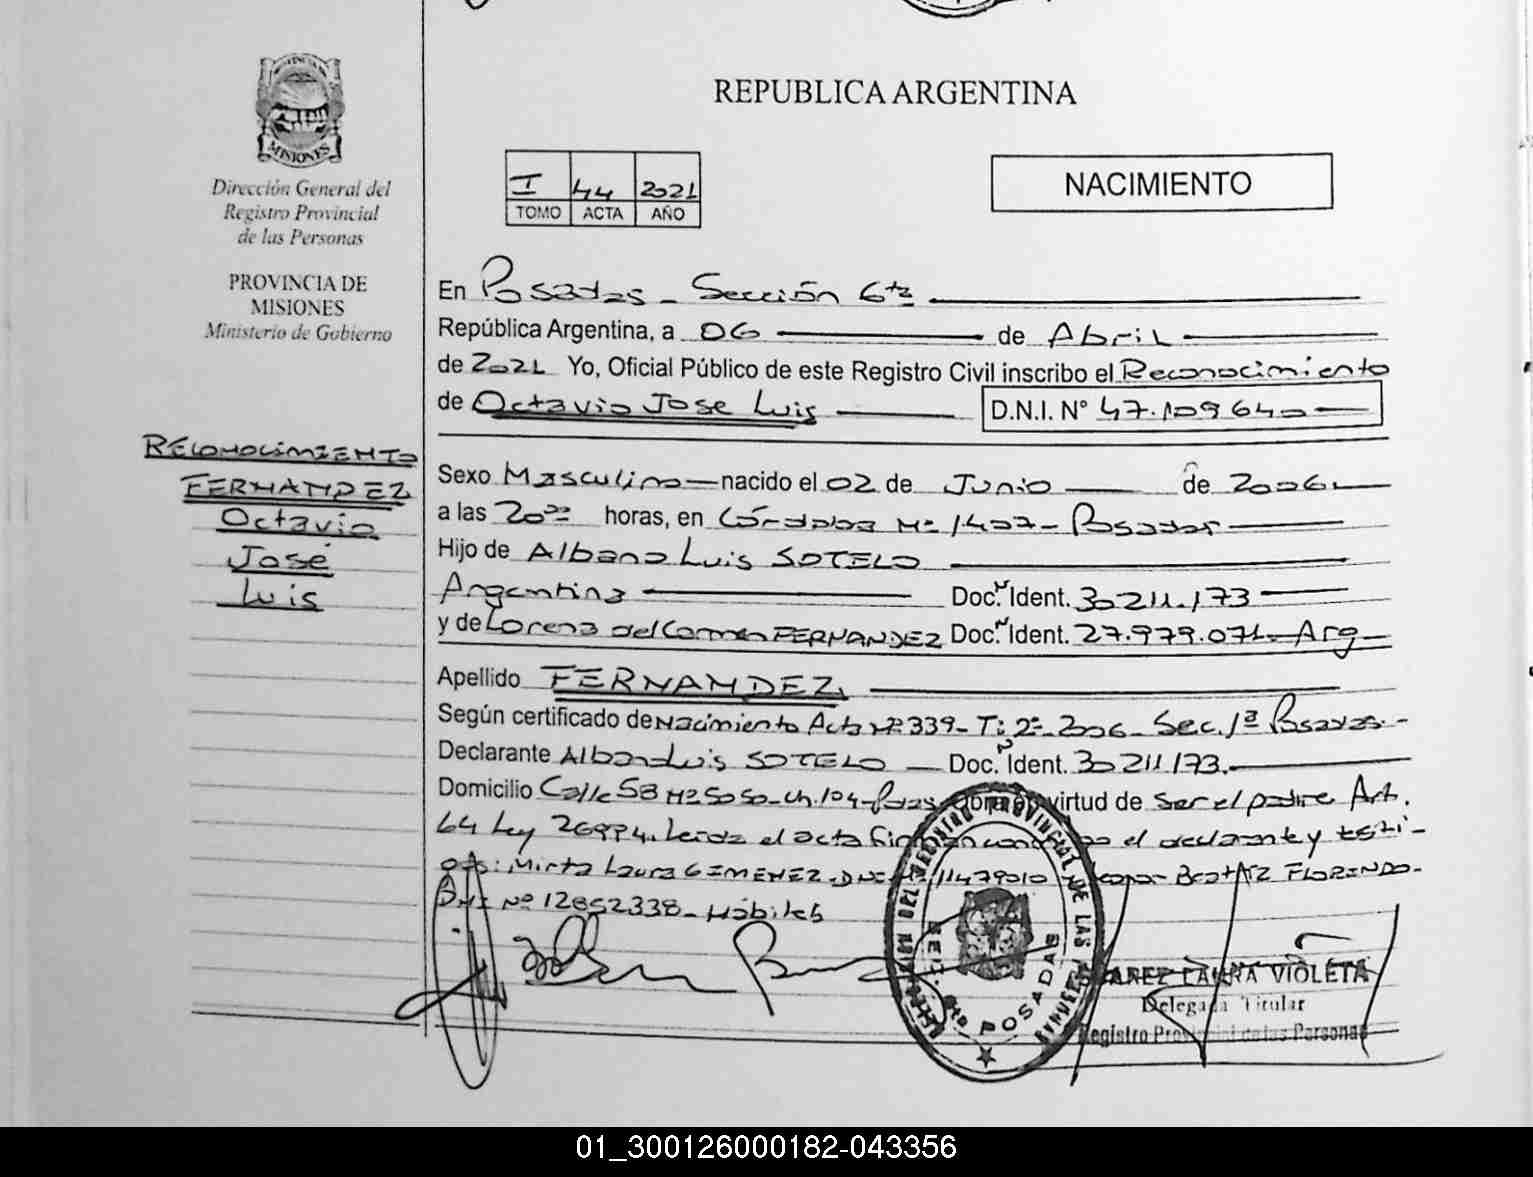 PROVINCIA DE
MISIONES
Dirección General del
Registro Provincial
de las Personas
PROVINCIA DE
MISIONES
Ministerio de Gobierno
REPUBLICA ARGENTINA
I 44 2021
TOMO ACTA AÑO
NACIMIENTO
RECONOCIMIENTO
FERNANDEZ
Octavio
José
Luis
En Posadas - Sección 6ta
República Argentina, a 06 de Abril
de 2021 Yo, Oficial Público de este Registro Civil inscribo el Reconocimiento
de Octavio Jose Luis D.N.I. N° 47.109640
Sexo Masculino nacido el 02 de Junio de 2006
a las 20 horas, en Córdoba Nº 1407 - Posadas
Hijo de Albano Luis SOTELO
Argentina Doc. Ident. 30211.173
y de Lorena del Carmen FERNANDEZ Doc. Ident. 27.979.071 - Arg
Apellido FERNANDEZ
Según certificado de Nacimiento Acta Nº 339 - T: 2º - 2006 - Sec. 1ª Posadas.-
Declarante Alban Luis SOTELO Doc. Ident. 30211173.
Domicilio Calle 58 Nº 5050 - Ch. 104 - Pdas. virtud de ser el padre Art.
64 Ley 26994. Leída el acta el declarante y testi-
gos: Mirta Laura GIMENEZ. 11479010 Beatriz FLORINDO-
DNI Nº 12852338 - Hábiles
DELEGACION DEL REGISTRO PROVINCIAL DE LAS PERSONAS
SECC. 6ta POSADAS
LAURA VIOLETA
Delegada Titular
Registro Provincial de las Personas
01_300126000182-043356